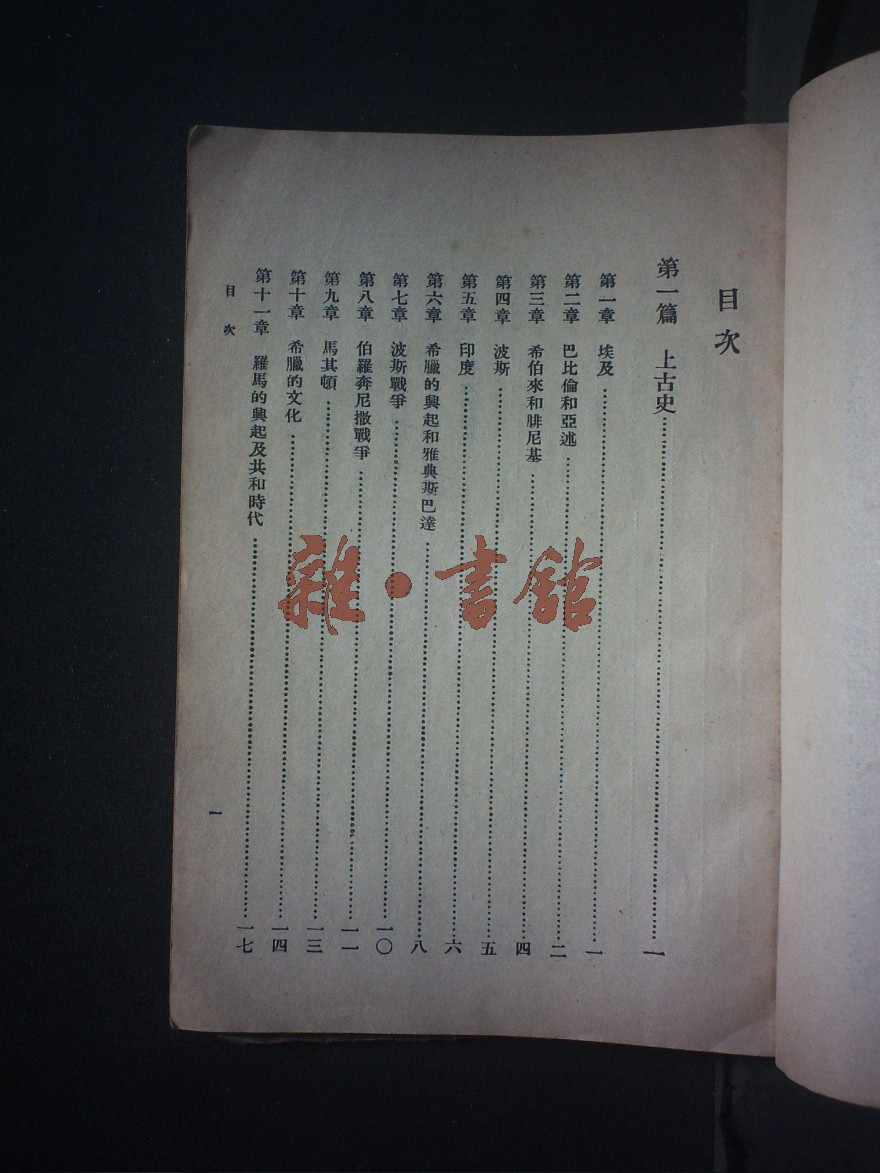 目次
第一篇　上古史……一
第一章　埃及……一
第二章　巴比倫和亞述……二
第三章　希伯來和腓尼基……四
第四章　波斯……五
第五章　印度……六
第六章　希臘的興起和雅典斯巴達……八
第七章　波斯戰爭……一〇
第八章　伯羅奔尼撒戰爭……一一
第九章　馬其頓……一三
第十章　希臘的文化……一四
第十一章　羅馬的興起及共和時代……一七
目次
一
雜·書館